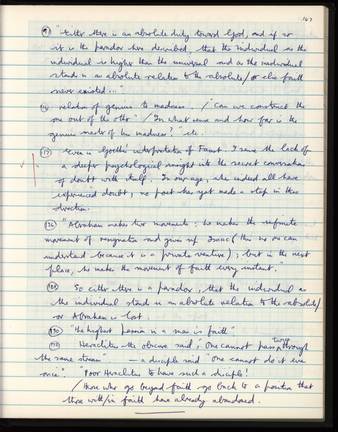 167
"Either there is an absolute duty toward God, and if so
it is the paradox here described, that the individual as the
individual is higher than the universal and as the individual
stands in an absolute relation to the absolute / or else faith
never existed..."
relation of genius to madness. / "Can we construct the
one out of the other" / "In what sense and how far is the
genius master of his madness?" etc.
Even in Goethe's interpretation of Faust I miss the lack of
a deeper psychological insight into the secret conversation
of doubt with itself. In our age, when indeed all have
experienced doubt, no poet has yet made a step in this
direction.
"Abraham makes two movements: he makes the infinite
movement of resignation and gives up Isaac (this no one can
understand because it is a private venture); but in the next
place, he makes the movement of faith every instant."
So either there is a paradox, that the individual as
the individual stands in an absolute relation to the absolute /
or Abraham is lost.
"The highest passion in a man is faith"
Heraclitus the obscure said, "One cannot pass twice through
the same stream" — a disciple said "One cannot do it even
once". "Poor Heraclitus to have such a disciple!
/ Those who go beyond faith go back to a position that
those with/in faith have already abandoned.